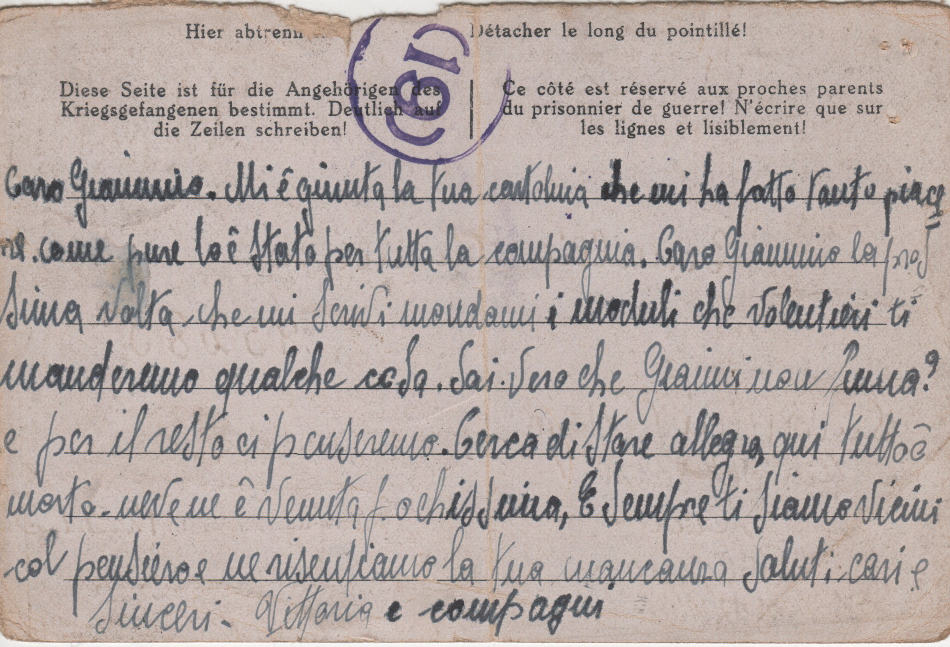 Hier abtrenn
Détacher le long du pointillé!
Diese Seite ist für die Angehörigen des
Kriegsgefangenen bestimmt. Deutlich auf
die Zeilen schreiben!
Ce côté est réservé aux proches parents
du prisonnier de guerre! N'écrire que sur
les lignes et lisiblement!
Caro Giannino. Mi é giunta la tua cartolina che mi ha fatto tanto piace
re. come pure lo ê stato per tutta la compagnia. Caro Giannino la pros
sima volta che mi scrivi mandami i moduli che volentieri ti
manderemo qualche cosa. Sai. Vero che Gianni non fuma?
e per il resto ci penseremo. Cerca di stare allegro, qui tutto ê
morto. neve ne ê venuta pochissima, E sempre ti siamo vicini
col pensiero e ne risentiamo la tua mancanza Saluti cari e
Sinceri - Vittoria e compagni